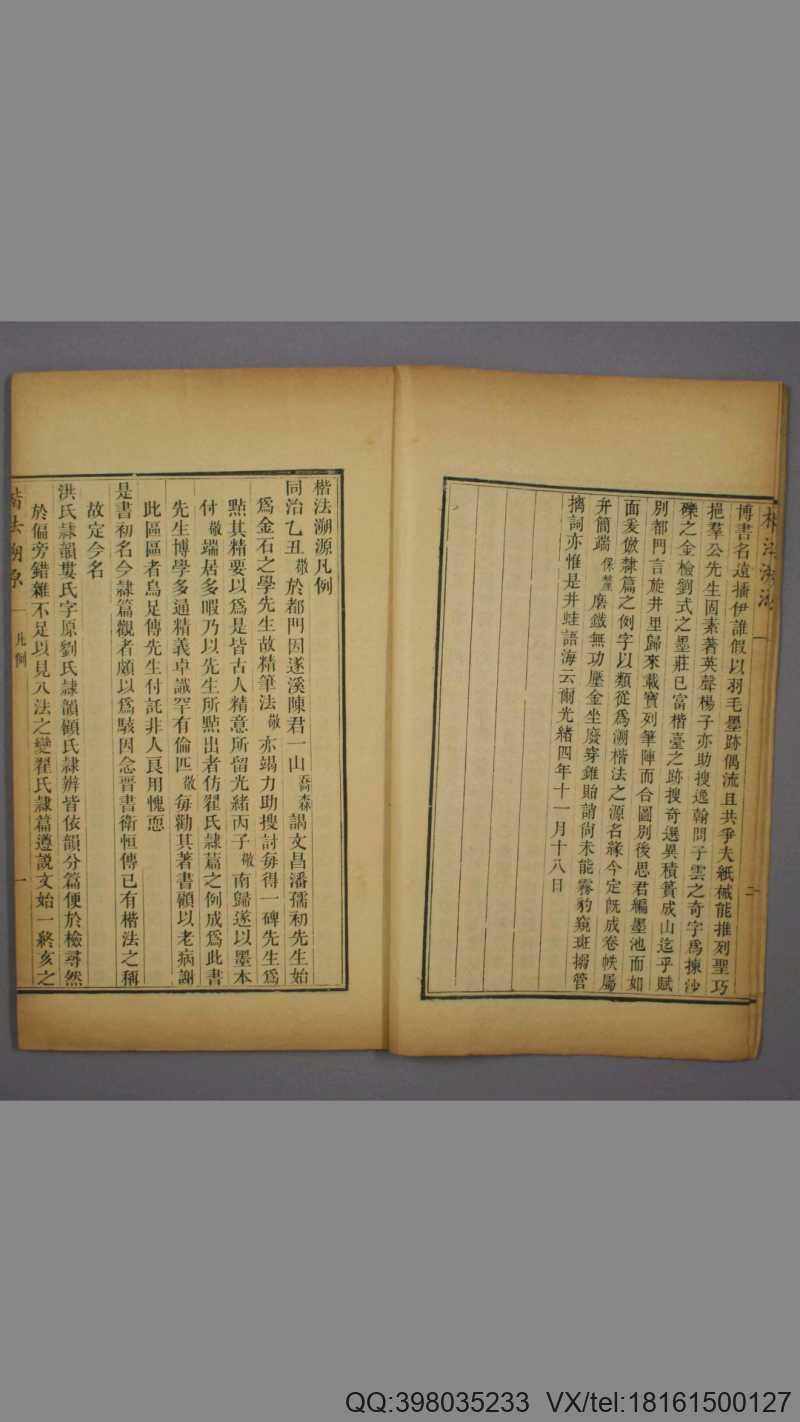 博書名遠播伊誰假以羽毛墨跡偶流且共爭夫紙椷能推列聖巧
挹羣公先生固素著英聲楊子亦助搜逸翰問子雲之奇字爲揀沙
礫之金檢劉式之墨莊已富楷臺之跡搜奇選異積簣成山迄乎賦
別都門言旋井里歸來載寶列筆陣而合圖別後思君編墨池而如
面爰倣隸篇之例字以類從爲溯楷法之源名緣今定旣成卷帙屬
弁簡端保釐磨鐵無功壓金坐廢穿錐貽誚尙未能霧豹窺斑搦管
摛詞亦惟是井蛙語海云爾光緒四年十一月十八日
二
楷法溯源凡例
同治乙丑敬於都門因遂溪陳君一山喬森謁文昌潘孺初先生始
爲金石之學先生故精筆法敬亦竭力助搜討每得一碑先生爲
點其精要以爲是皆古人精意所留光緒丙子敬南歸遂以墨本
付敬端居多暇乃以先生所點出者仿翟氏隸篇之例成爲此書
先生博學多通精義卓識罕有倫匹敬每勸其著書顧以老病謝
此區區者烏足傳先生付託非人良用愧恧
是書初名今隸篇觀者頗以爲駭因念晉書衛恒傳已有楷法之稱
故定今名
洪氏隸韻婁氏字原劉氏隸韻顧氏隸辨皆依韻分篇便於檢尋然
於偏旁錯雜不足以見八法之變翟氏隸篇遵說文始一終亥之
楷法溯源
凡例
一
QQ:398035233 VX/tel:18161500127